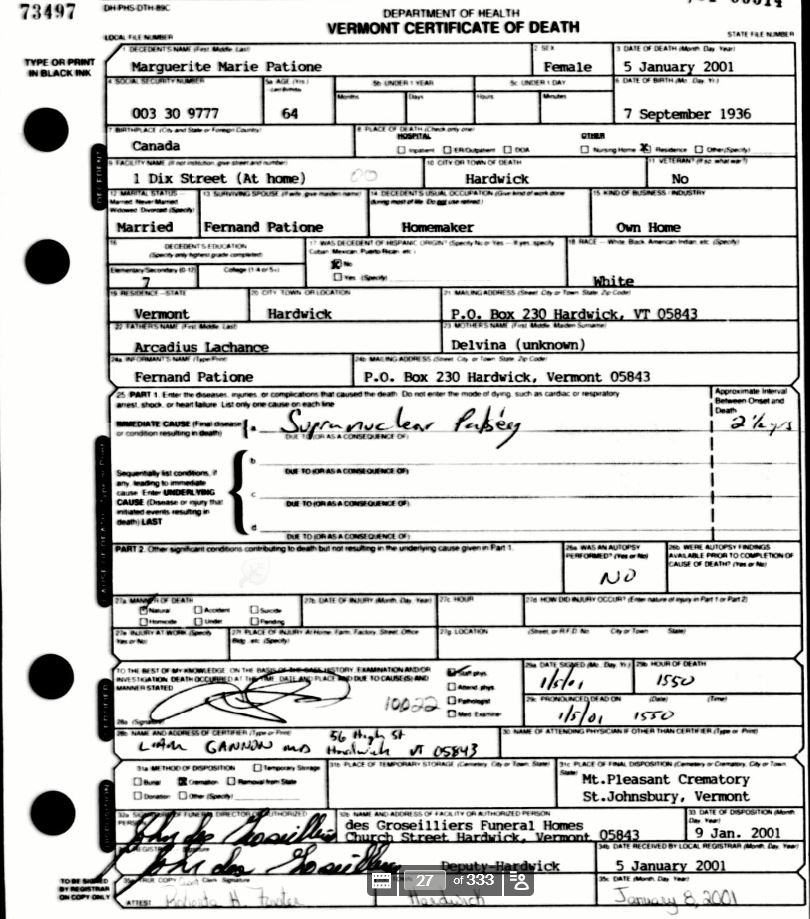 73497
DH-PHS-DTH-89C
DEPARTMENT OF HEALTH
VERMONT CERTIFICATE OF DEATH
LOCAL FILE NUMBER
STATE FILE NUMBER
TYPE OR PRINT IN BLACK INK
1 DECEDENT'S NAME (First, Middle, Last)
Marguerite Marie Patione
2 SEX
Female
3 DATE OF DEATH (Month, Day, Year)
5 January 2001
4 SOCIAL SECURITY NUMBER
003 30 9777
5a AGE (Yrs) Last Birthday
64
5b UNDER 1 YEAR
Months Days
5c UNDER 1 DAY
Hours Minutes
6 DATE OF BIRTH (Mo., Day, Yr.)
7 September 1936
7 BIRTHPLACE (City and State or Foreign Country)
Canada
8 PLACE OF DEATH (Check only one)
HOSPITAL
Inpatient ER/Outpatient DOA
OTHER
Nursing Home X Residence Other (Specify)
9 FACILITY NAME (If not institution, give street and number)
1 Dix Street (At home)
10 CITY OR TOWN OF DEATH
Hardwick
11 VETERAN? (If so, what war?)
No
12 MARITAL STATUS - Married Never Married Widowed Divorced (Specify)
Married
13 SURVIVING SPOUSE (If wife, give maiden name)
Fernand Patione
14 DECEDENT'S USUAL OCCUPATION (Give kind of work done during most of life. Do not use retired)
Homemaker
15 KIND OF BUSINESS / INDUSTRY
Own Home
16 DECEDENT'S EDUCATION
(Specify only highest grade completed)
Elementary/Secondary (0-12) College (1-4 or 5+)
7
17 WAS DECEDENT OF HISPANIC ORIGIN? (Specify No or Yes - If yes, specify Cuban, Mexican, Puerto Rican, etc.)
X No
Yes (Specify)
18 RACE - White, Black, American Indian, etc. (Specify)
White
19 RESIDENCE - STATE
Vermont
20 CITY, TOWN OR LOCATION
Hardwick
21 MAILING ADDRESS (Street, City or Town, State, Zip Code)
P.O. Box 230 Hardwick, VT 05843
22 FATHER'S NAME (First, Middle, Last)
Arcadius Lachance
23 MOTHER'S NAME (First, Middle, Maiden Surname)
Delvina (unknown)
24a INFORMANT'S NAME (Type/Print)
Fernand Patione
24b MAILING ADDRESS (Street, City or Town, State, Zip Code)
P.O. Box 230 Hardwick, Vermont 05843
25 PART 1. Enter the diseases, injuries, or complications that caused the death. Do not enter the mode of dying, such as cardiac or respiratory
arrest, shock, or heart failure. List only one cause on each line
Approximate Interval Between Onset and Death
IMMEDIATE CAUSE (Final disease or condition resulting in death)
a Supranuclear
DUE TO (OR AS A CONSEQUENCE OF)
Sequentially list conditions, if any, leading to immediate cause. Enter UNDERLYING CAUSE (Disease or injury that initiated events resulting in death) LAST
b
DUE TO (OR AS A CONSEQUENCE OF)
c
DUE TO (OR AS A CONSEQUENCE OF)
d
DUE TO (OR AS A CONSEQUENCE OF)
PART 2. Other significant conditions contributing to death but not resulting in the underlying cause given in Part 1.
26a WAS AN AUTOPSY PERFORMED? (Yes or No)
NO
26b WERE AUTOPSY FINDINGS AVAILABLE PRIOR TO COMPLETION OF CAUSE OF DEATH? (Yes or No)
27a MANNER OF DEATH
Natural Accident Suicide
Homicide Under Pending
27b DATE OF INJURY (Month, Day, Year)
27c HOUR
27d HOW DID INJURY OCCUR? (Enter nature of injury in Part 1 or Part 2)
27e INJURY AT WORK (Specify Yes or No)
27f PLACE OF INJURY At Home, Farm, Factory, Street, Office Bldg., etc. (Specify)
27g LOCATION (Street, or R.F.D. No. City or Town State)
TO THE BEST OF MY KNOWLEDGE, ON THE BASIS OF THE CASE HISTORY, EXAMINATION AND/OR
INVESTIGATION, DEATH OCCURRED AT THE TIME, DATE AND PLACE AND DUE TO CAUSE(S) AND
MANNER STATED
28a (Signature)
10022
Staff phys.
Attend. phys.
Pathologist
Med. Examiner
29a DATE SIGNED (Mo., Day, Yr.)
1/5/01
29b HOUR OF DEATH
1550
29c PRONOUNCED DEAD ON (Date) (Time)
1/5/01 1550
28b NAME AND ADDRESS OF CERTIFIER (Type or Print)
LIAM GANNON MD
56 High St
Hardwick VT 05843
30 NAME OF ATTENDING PHYSICIAN IF OTHER THAN CERTIFIER (Type or Print)
31a METHOD OF DISPOSITION Temporary Storage
Burial X Cremation Removal from State
Donation Other (Specify)
31b PLACE OF TEMPORARY STORAGE (Cemetery, City or Town, State)
31c PLACE OF FINAL DISPOSITION (Cemetery or Crematory, City or Town, State)
Mt.Pleasant Crematory
St.Johnsbury, Vermont
32b NAME AND ADDRESS OF FACILITY OR AUTHORIZED PERSON
des Groseilliers Funeral Homes
Church Street Hardwick, Vermont 05843
33 DATE OF DISPOSITION (Month, Day, Year)
9 Jan. 2001
John des Groseilliers
Deputy-Hardwick
34b DATE RECEIVED BY LOCAL REGISTRAR (Month, Day, Year)
5 January 2001
TO BE SIGNED BY REGISTRAR ON COPY ONLY
35a TRUE COPY
ATTEST:
Hardwick
35c DATE (Month, Day, Year)
January 8, 2001
27 of 333